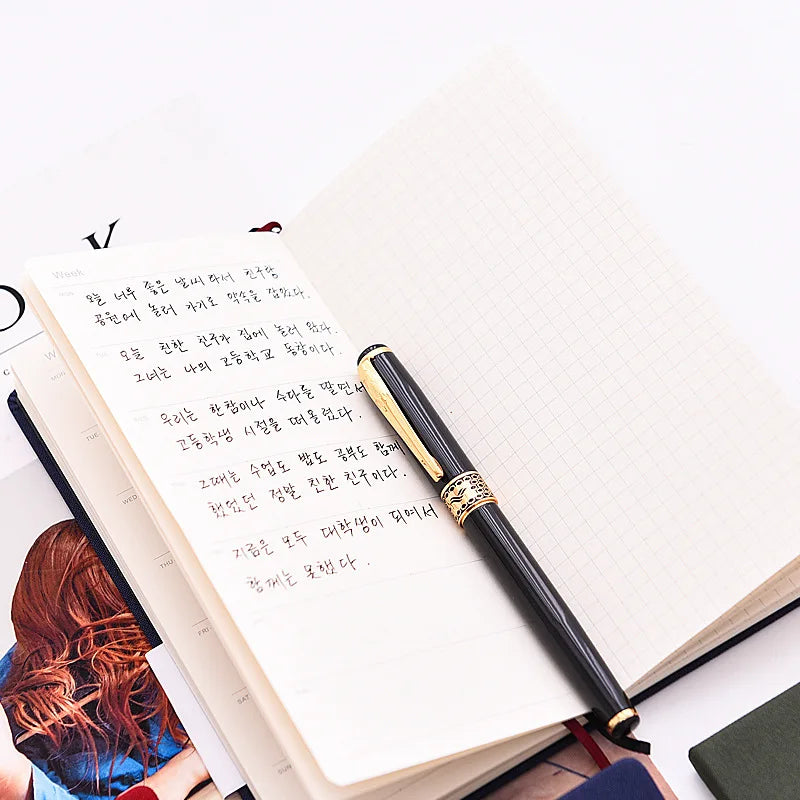 Week
MON
오늘 너무 좋은 날씨라서 친구랑
공원에 놀러 가기로 약속을 잡았다.
오늘 친한 친구가 집에 놀러 왔다.
그녀는 나의 고등학교 동창이다.
우리는 한참이나 수다를 떨면서
고등학생 시절을 떠올렸다.
그때는 수업도 밥도 공부도 함께
했었던 정말 친한 친구이다.
지금은 모두 대학생이 되어서
함께는 못했다.
W
MON
TUE
WED
THU
FRI
SAT
SUN